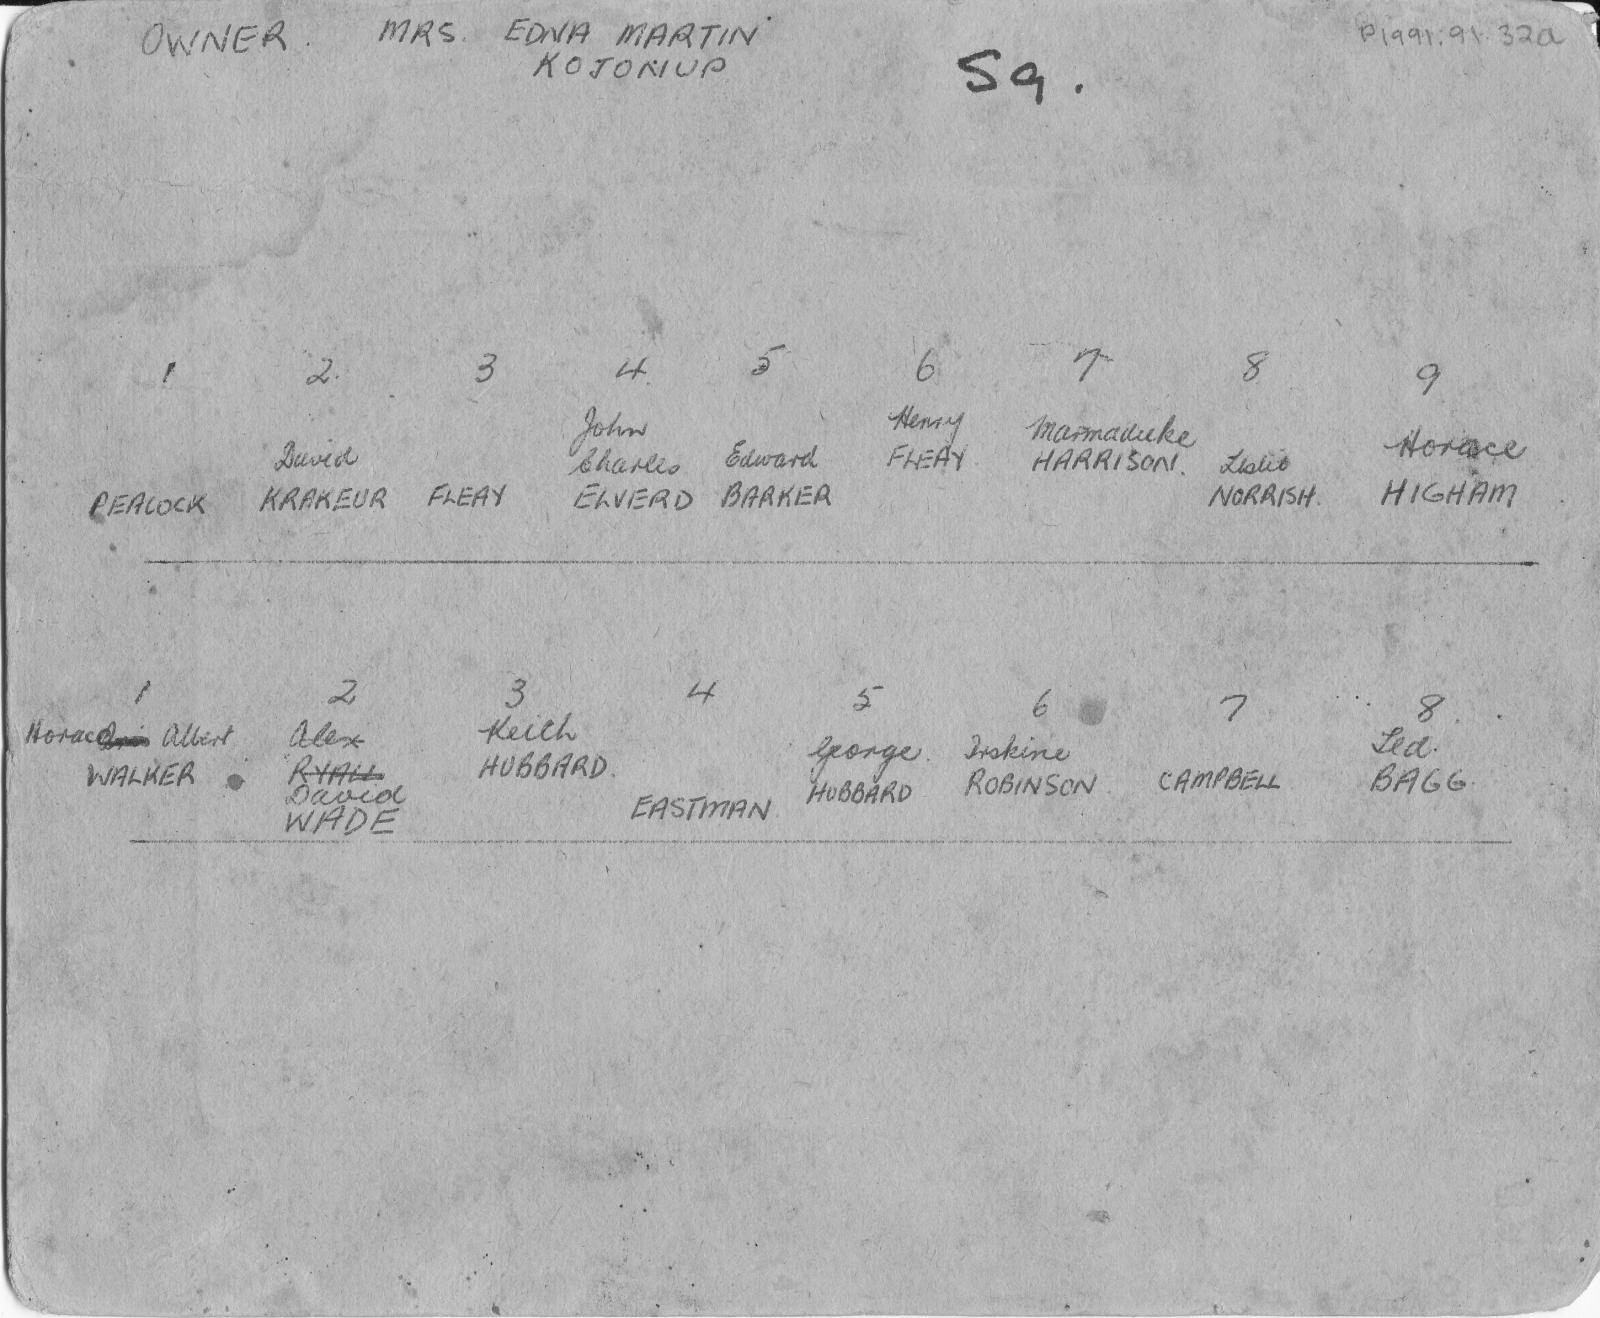 OWNER. MRS. EDNA MARTIN
KOJONUP
P1991.91.32a
Sq.
1 2. 3 4. 5 6 7 8 9
John Henry Marmaduke
David Charles Edward FLEAY HARRISON. Leslie Horace
PEACOCK KRAKEUR FLEAY ELVERD BARKER NORRISH. HIGHAM
1 2 3 4 5 6 7 8.
Horace Albert Alex Keith George. Erskine Ted.
WALKER RYALL HUBBARD. HUBBARD ROBINSON CAMPBELL BAGG.
David EASTMAN.
WADE